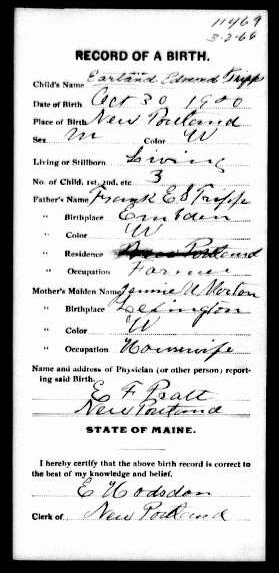 11469
3-3-66
RECORD OF A BIRTH.
Child's Name Earland Edmund Tripp
Date of Birth Oct 30 1900
Place of Birth New Portland
Sex M Color W
Living or Stillborn Living
No. of Child, 1st, 2nd, etc. 3
Father's Name Frank E S Tripp
" Birthplace Embden
" Color W
" Residence New Portland
" Occupation Farmer
Mother's Maiden Name Jennie N Norton
" Birthplace Lexington
" Color W
" Occupation Housewife
Name and address of Physician (or other person) report-
ing said Birth.
E F Pratt
New Portland
STATE OF MAINE.
I hereby certify that the above birth record is correct to
the best of my knowledge and belief.
E Hodsdon
Clerk of New Portland